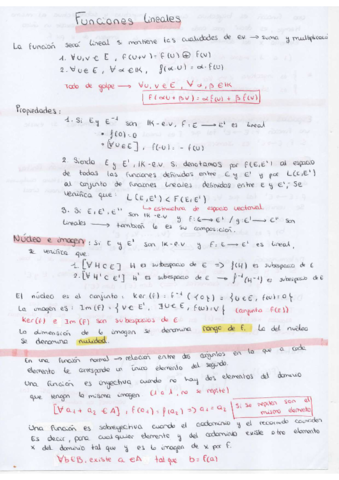 Funciones lineales
La función será lineal si mantiene las cualidades de ev → suma y multiplicación
1. ∀u,v ∈ E, f(u+v) = f(u) ⊕ f(v)
2. ∀u ∈ E, ∀α ∈ K, f(α·u) = α·f(u)
todo de golpe → ∀u,v ∈ E, ∀α,β ∈ K
f(αu+βv) = αf(u) + βf(v)
Propiedades:
1. Si E y E' son K-e.v. F: E → E' es lineal
• f(0) = 0
• [∀u ∈ E], f(-u) = -f(u)
2. Siendo E y E' K-e.v. Si denotamos por F(E,E') al espacio
de todas las funciones definidas entre E y E' y por L(E,E')
al conjunto de funciones lineales definidas entre E y E'. Se
verifica que: L(E,E') ⊂ F(E,E')
↳ estructura de espacio vectorial
3. Si E, E', E'' son K-e.v. y f: E → E' / g: E' → E'' son
lineales → también lo es su composición.
Núcleo e imagen: Si E y E' son K-e.v y f: E → E' es lineal,
se verifica que:
1. [∀H ⊂ E] H subespacio de E ⇒ f(H) es subespacio de E
2. [∀H' ⊂ E'] H' es subespacio de E → f⁻¹(H') es subespacio de E
El núcleo es el conjunto: Ker(f) = f⁻¹({0}) = {u ∈ E, f(u) = 0}
La imagen es: Im(f) = {v ∈ E', ∃u ∈ E, f(u) = v} (conjunto f(E))
Ker(f) e Im(f) son subespacios de E
La dimensión de la imagen se denomina rango de f. La del núcleo
se denomina nulidad.
En una función normal → relación entre dos conjuntos en la que a cada
elemento le corresponde un único elemento del segundo.
Una función es inyectiva cuando no hay dos elementos del dominio
que tengan la misma imagen
[∀a₁ ∧ a₂ ∈ A], f(a₁) = f(a₂) ⇒ a₁ = a₂
Si se repiten son el
mismo elemento
Una función es sobreyectiva cuando el codominio y el recorrido coinciden
Es decir, para cualquier elemento y del codominio existe otro elemento
x del dominio tal que y es la imagen de x por f.
∀b∈B, existe a ∈A tal que b = f(a)